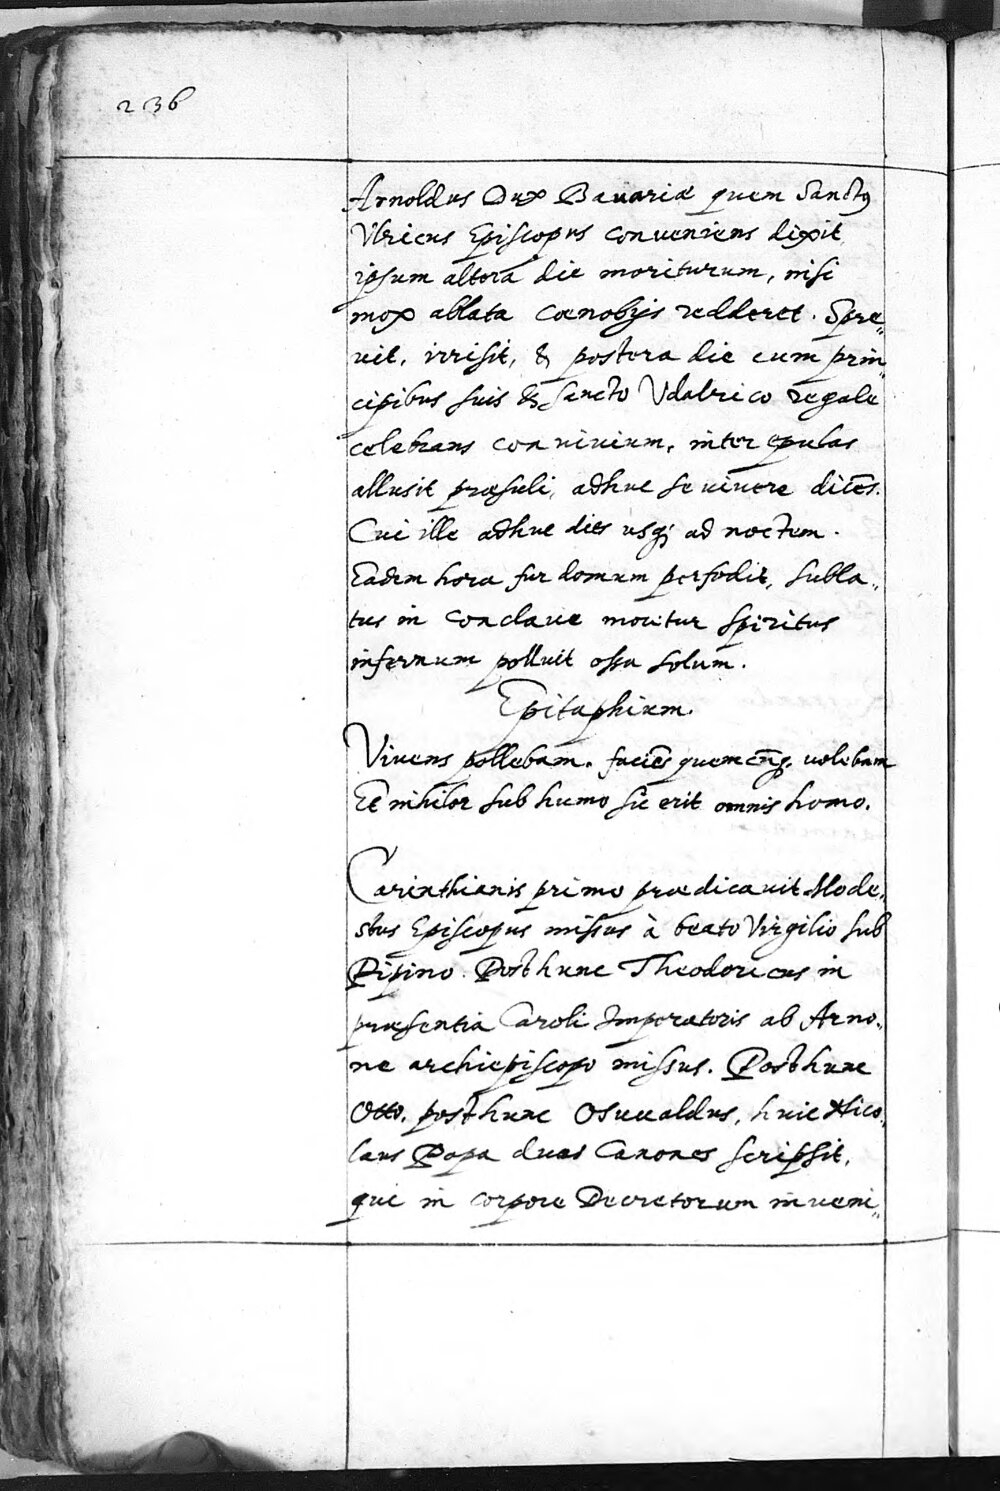 236
Arnoldus Dux Bavariæ quem Sanctꝰ
Vlricus Episcopus conveniens dixit
ipsum altera die moriturum, nisi
mox ablata cœnobijs redderet. Spre„
uit, irrisit, & postera die cum prin„
cipibus suis & Sancto Vdalrico regale
celebrans conuiuium, inter epulas
allusit præsuli, adhuc se viuere dicẽs.
Cui ille adhuc dies usqꝫ ad noctem.
Eadem hora fur domum perfodit, subla„
tus in conclave moritur spiritus
infernum polluit ossa solum.
Epitaphium.
Viuens pollebam, faciẽs quemcũqꝫ volebam
Et nihilor sub humo sic erit omnis homo.
Carinthianis primo prædicauit Mode„
stus Episcopus missus à beato Virgilio sub
Pipino. Post hunc Theodoricus in
præsentia Caroli Imperatoris ab Arno„
ne archiepiscopo missus. Post hunc
Otto, post hunc Osuualdus, huic Nico„
laus Papa duas Canones scripsit,
qui in corpore Decretorum inveni„